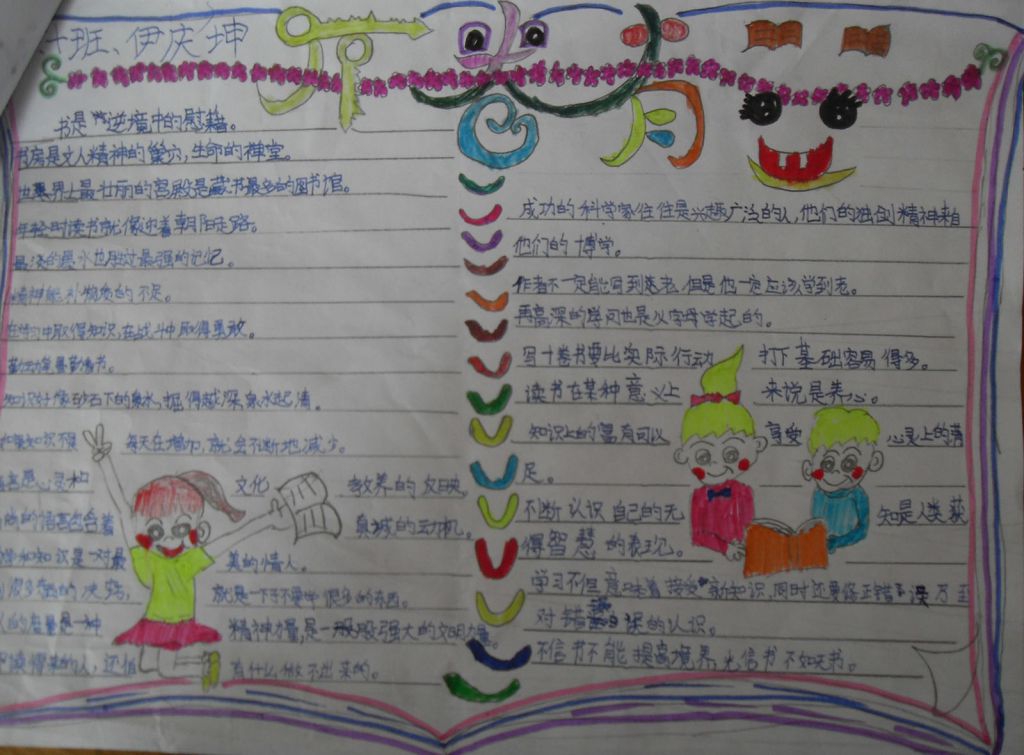 班、伊庆坤
开卷有
书是逆境中的慰藉。
书房是文人精神的巢穴,生命的禅堂。
世界上最壮丽的宫殿是藏书最多的图书馆。
年轻时读书就像迎着朝阳走路。
最淡的墨水也胜过最强的记忆。
精神能补物质的不足。
取得知识,在战斗中取得勇敢。
知识好像砂石下的泉水,掘得越深泉水起清。
如果知识不很 每天在增加,就会不断地减少。
语言是心灵和 文化 教养的反映。
的语言包含着 真诚的动机。
和知识是一对最 美的情人。
很多的诀窍, 就是一下子不要学很多的东西。
的力量是一种 精神力量,是一般股强大的文明力量。
读得来的人,还怕 有什么做不出来的。
成功的科学家往往是兴趣广泛的人,他们的独创精神来自
他们的博学。
作者不一定能写到老,但是他一定应该学到老。
再高深的学问也是从字母学起的。
写十卷书要比实际行动 打下基础容易得多。
读书在某种意义上 来说是养心。
知识上的富有可以 享受 心灵上的满
足。
不断认识自己的无 知是人类获
得智慧的表现。
学习不但意味着接受新知识,同时还要修正错误乃至
对错误的认识。
不信书不能提高境界,光信书不如无书。